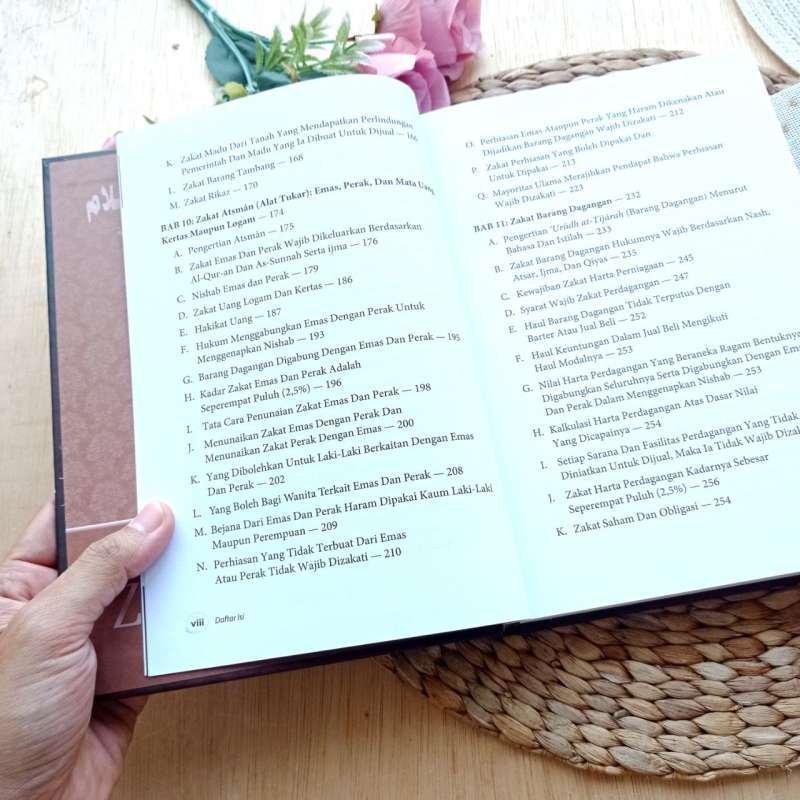 K. Zakat Madu Dari Tanah Yang Mendapatkan Perlindungan
Pemerintah Dan Madu Yang Ia Dibuat Untuk Dijual — 166
L. Zakat Barang Tambang — 168
M. Zakat Rikaz — 170
BAB 10: Zakat Atsmân (Alat Tukar): Emas, Perak, Dan Mata Uang
Kertas Maupun Logam — 174
A. Pengertian Atsmân — 175
B. Zakat Emas Dan Perak Wajib Dikeluarkan Berdasarkan
Al-Qur-an Dan As-Sunnah Serta ijma — 176
C. Nishab Emas dan Perak — 179
D. Zakat Uang Logam Dan Kertas — 186
E. Hakikat Uang — 187
F. Hukum Menggabungkan Emas Dengan Perak Untuk
Menggenapkan Nishab — 193
G. Barang Dagangan Digabung Dengan Emas Dan Perak — 195
H. Kadar Zakat Emas Dan Perak Adalah
Seperempat Puluh (2,5%) — 196
I. Tata Cara Penunaian Zakat Emas Dan Perak — 198
J. Menunaikan Zakat Emas Dengan Perak Dan
Menunaikan Zakat Perak Dengan Emas — 200
K. Yang Dibolehkan Untuk Laki-Laki Berkaitan Dengan Emas
Dan Perak — 202
L. Yang Boleh Bagi Wanita Terkait Emas Dan Perak — 208
M. Bejana Dari Emas Dan Perak Haram Dipakai Kaum Laki-Laki
Maupun Perempuan — 209
N. Perhiasan Yang Tidak Terbuat Dari Emas
Atau Perak Tidak Wajib Dizakati — 210
viii Daftar Isi
O. Perhiasan Emas Ataupun Perak Yang Haram Dikenakan Atau
Dijadikan Barang Dagangan Wajib Dizakati — 212
P. Zakat Perhiasan Yang Boleh Dipakai Dan
Untuk Dipakai — 213
Q. Mayoritas Ulama Merajihkan Pendapat Bahwa Perhiasan
Wajib Dizakati — 223
BAB 11: Zakat Barang Dagangan — 232
A. Pengertian 'Urûdh at-Tijârah (Barang Dagangan) Menurut
Bahasa Dan Istilah — 233
B. Zakat Barang Dagangan Hukumnya Wajib Berdasarkan Nash,
Atsar, Ijma, Dan Qiyas — 235
C. Kewajiban Zakat Harta Perniagaan — 245
D. Syarat Wajib Zakat Perdagangan — 247
E. Haul Barang Dagangan Tidak Terputus Dengan
Barter Atau Jual Beli — 252
F. Haul Keuntungan Dalam Jual Beli Mengikuti
Haul Modalnya — 253
G. Nilai Harta Perdagangan Yang Beraneka Ragam Bentuknya
Digabungkan Seluruhnya Serta Digabungkan Dengan Emas
Dan Perak Dalam Menggenapkan Nishab — 253
H. Kalkulasi Harta Perdagangan Atas Dasar Nilai
Yang Dicapainya — 254
I. Setiap Sarana Dan Fasilitas Perdagangan Yang Tidak
Diniatkan Untuk Dijual, Maka Ia Tidak Wajib
J. Zakat Harta Perdagangan Kadarnya Sebesar
Seperempat Puluh (2,5%) — 256
K. Zakat Saham Dan Obligasi — 254